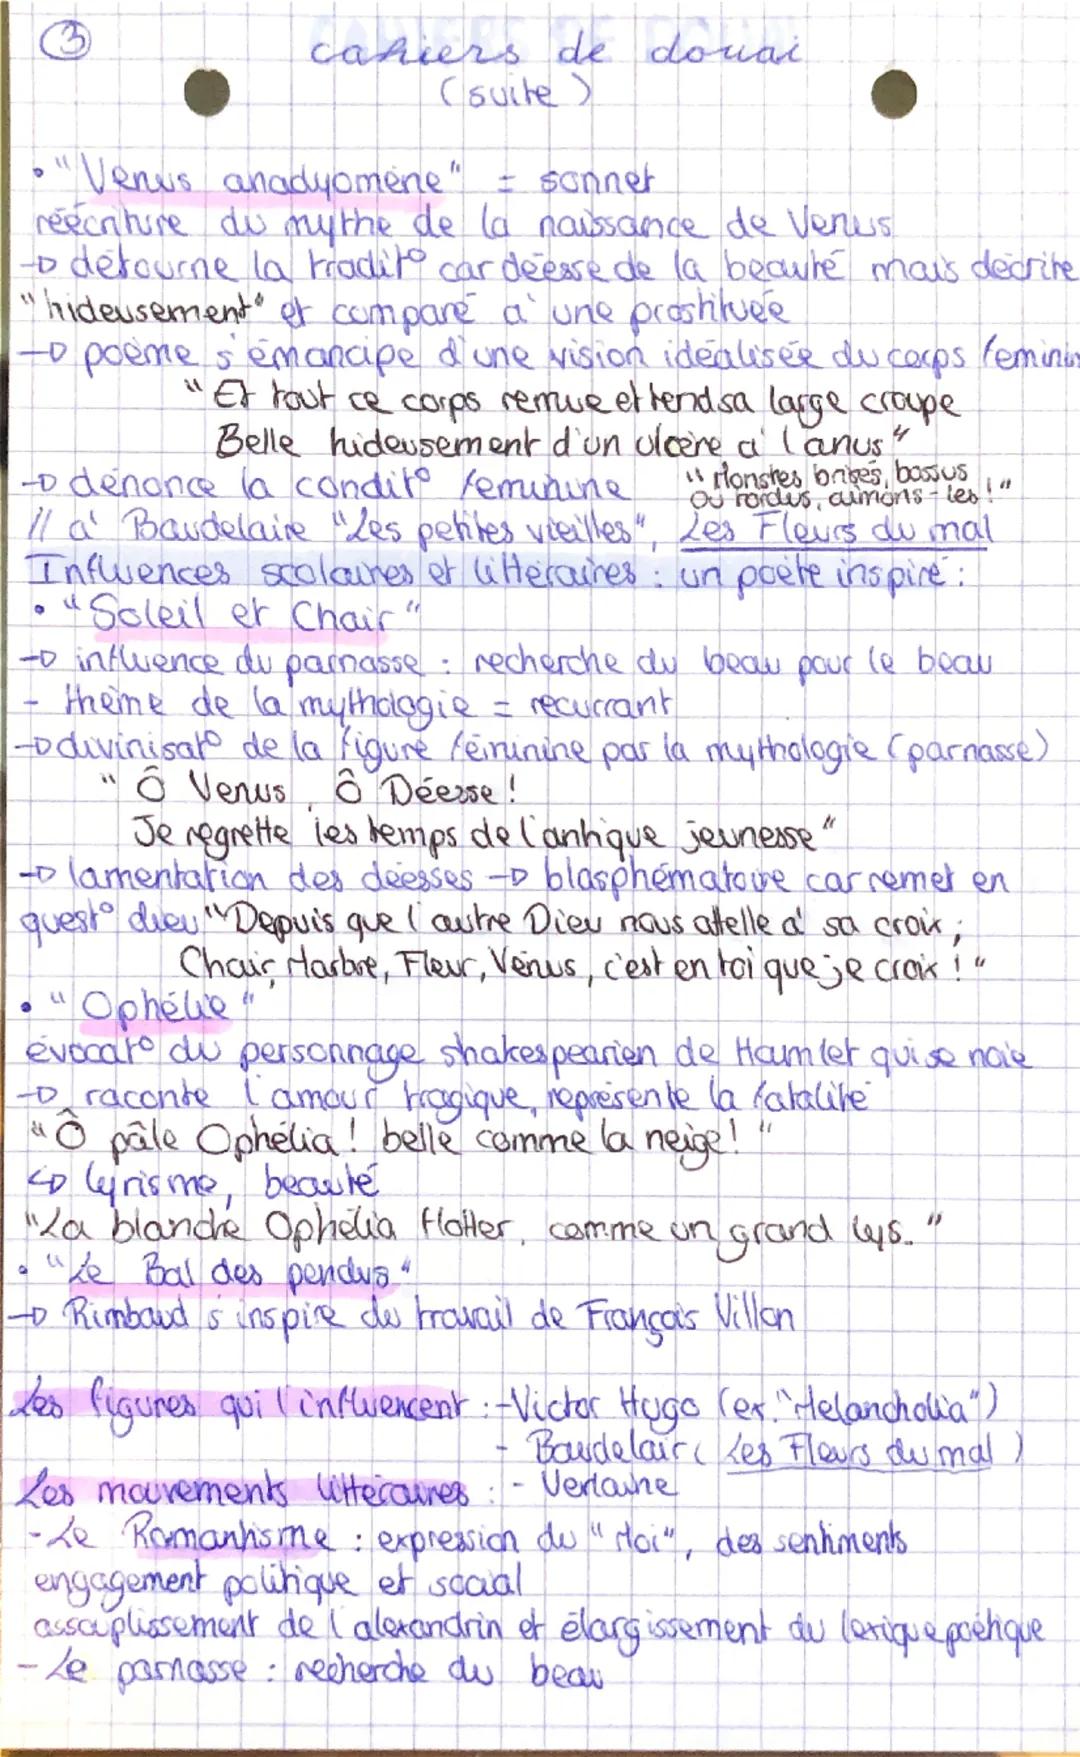 3
cahiers de douai
(suite)
• "Venus anadyomène" = sonnet
réécriture du mythe de la naissance de Venus
→ détourne la tradit° car déesse de la beauté mais décrite
"hideusement" et comparé à une prostituée
→ poème s'émancipe d'une vision idéalisée du corps féminin
"Et tout ce corps remue et tend sa large croupe
Belle hideusement d'un ulcère à l'anus"
→ dénonce la condit° féminine
"Monstres brisés, bossus
ou tordus, aimons-les !"
// à Baudelaire "Les petites vieilles", Les Fleurs du mal
Influences scolaires et littéraires : un poète inspiré :
• "Soleil et Chair"
→ influence du parnasse : recherche du beau pour le beau
- thème de la mythologie = recurrant
→ divinisat° de la figure féminine par la mythologie (parnasse)
"Ô Venus, Ô Déesse !
Je regrette les temps de l'antique jeunesse"
→ lamentation des déesses → blasphématoire car remet en
quest° dieu "Depuis que l'autre Dieu nous attelle à sa croix ;
Chair, Marbre, Fleur, Vénus, c'est en toi que je croix !"
• "Ophélie"
évocat° du personnage shakespearien de Hamlet qui se noie
→ raconte l'amour tragique, représente la fatalité
"Ô pâle Ophélia ! belle comme la neige !"
↳ lyrisme, beauté
"La blanche Ophélia flotter, comme un grand lys."
• "Le Bal des pendus"
→ Rimbaud s'inspire du travail de François Villon
Les figures qui l'influencent : - Victor Hugo (ex. "Melancholia")
- Baudelair (Les Fleurs du mal)
Les mouvements littéraires : - Verlaine
- Le Romantisme : expression du "Moi", des sentiments
engagement politique et social
assouplissement de l'alexandrin et élargissement du lexique poétique
- Le parnasse : recherche du beau